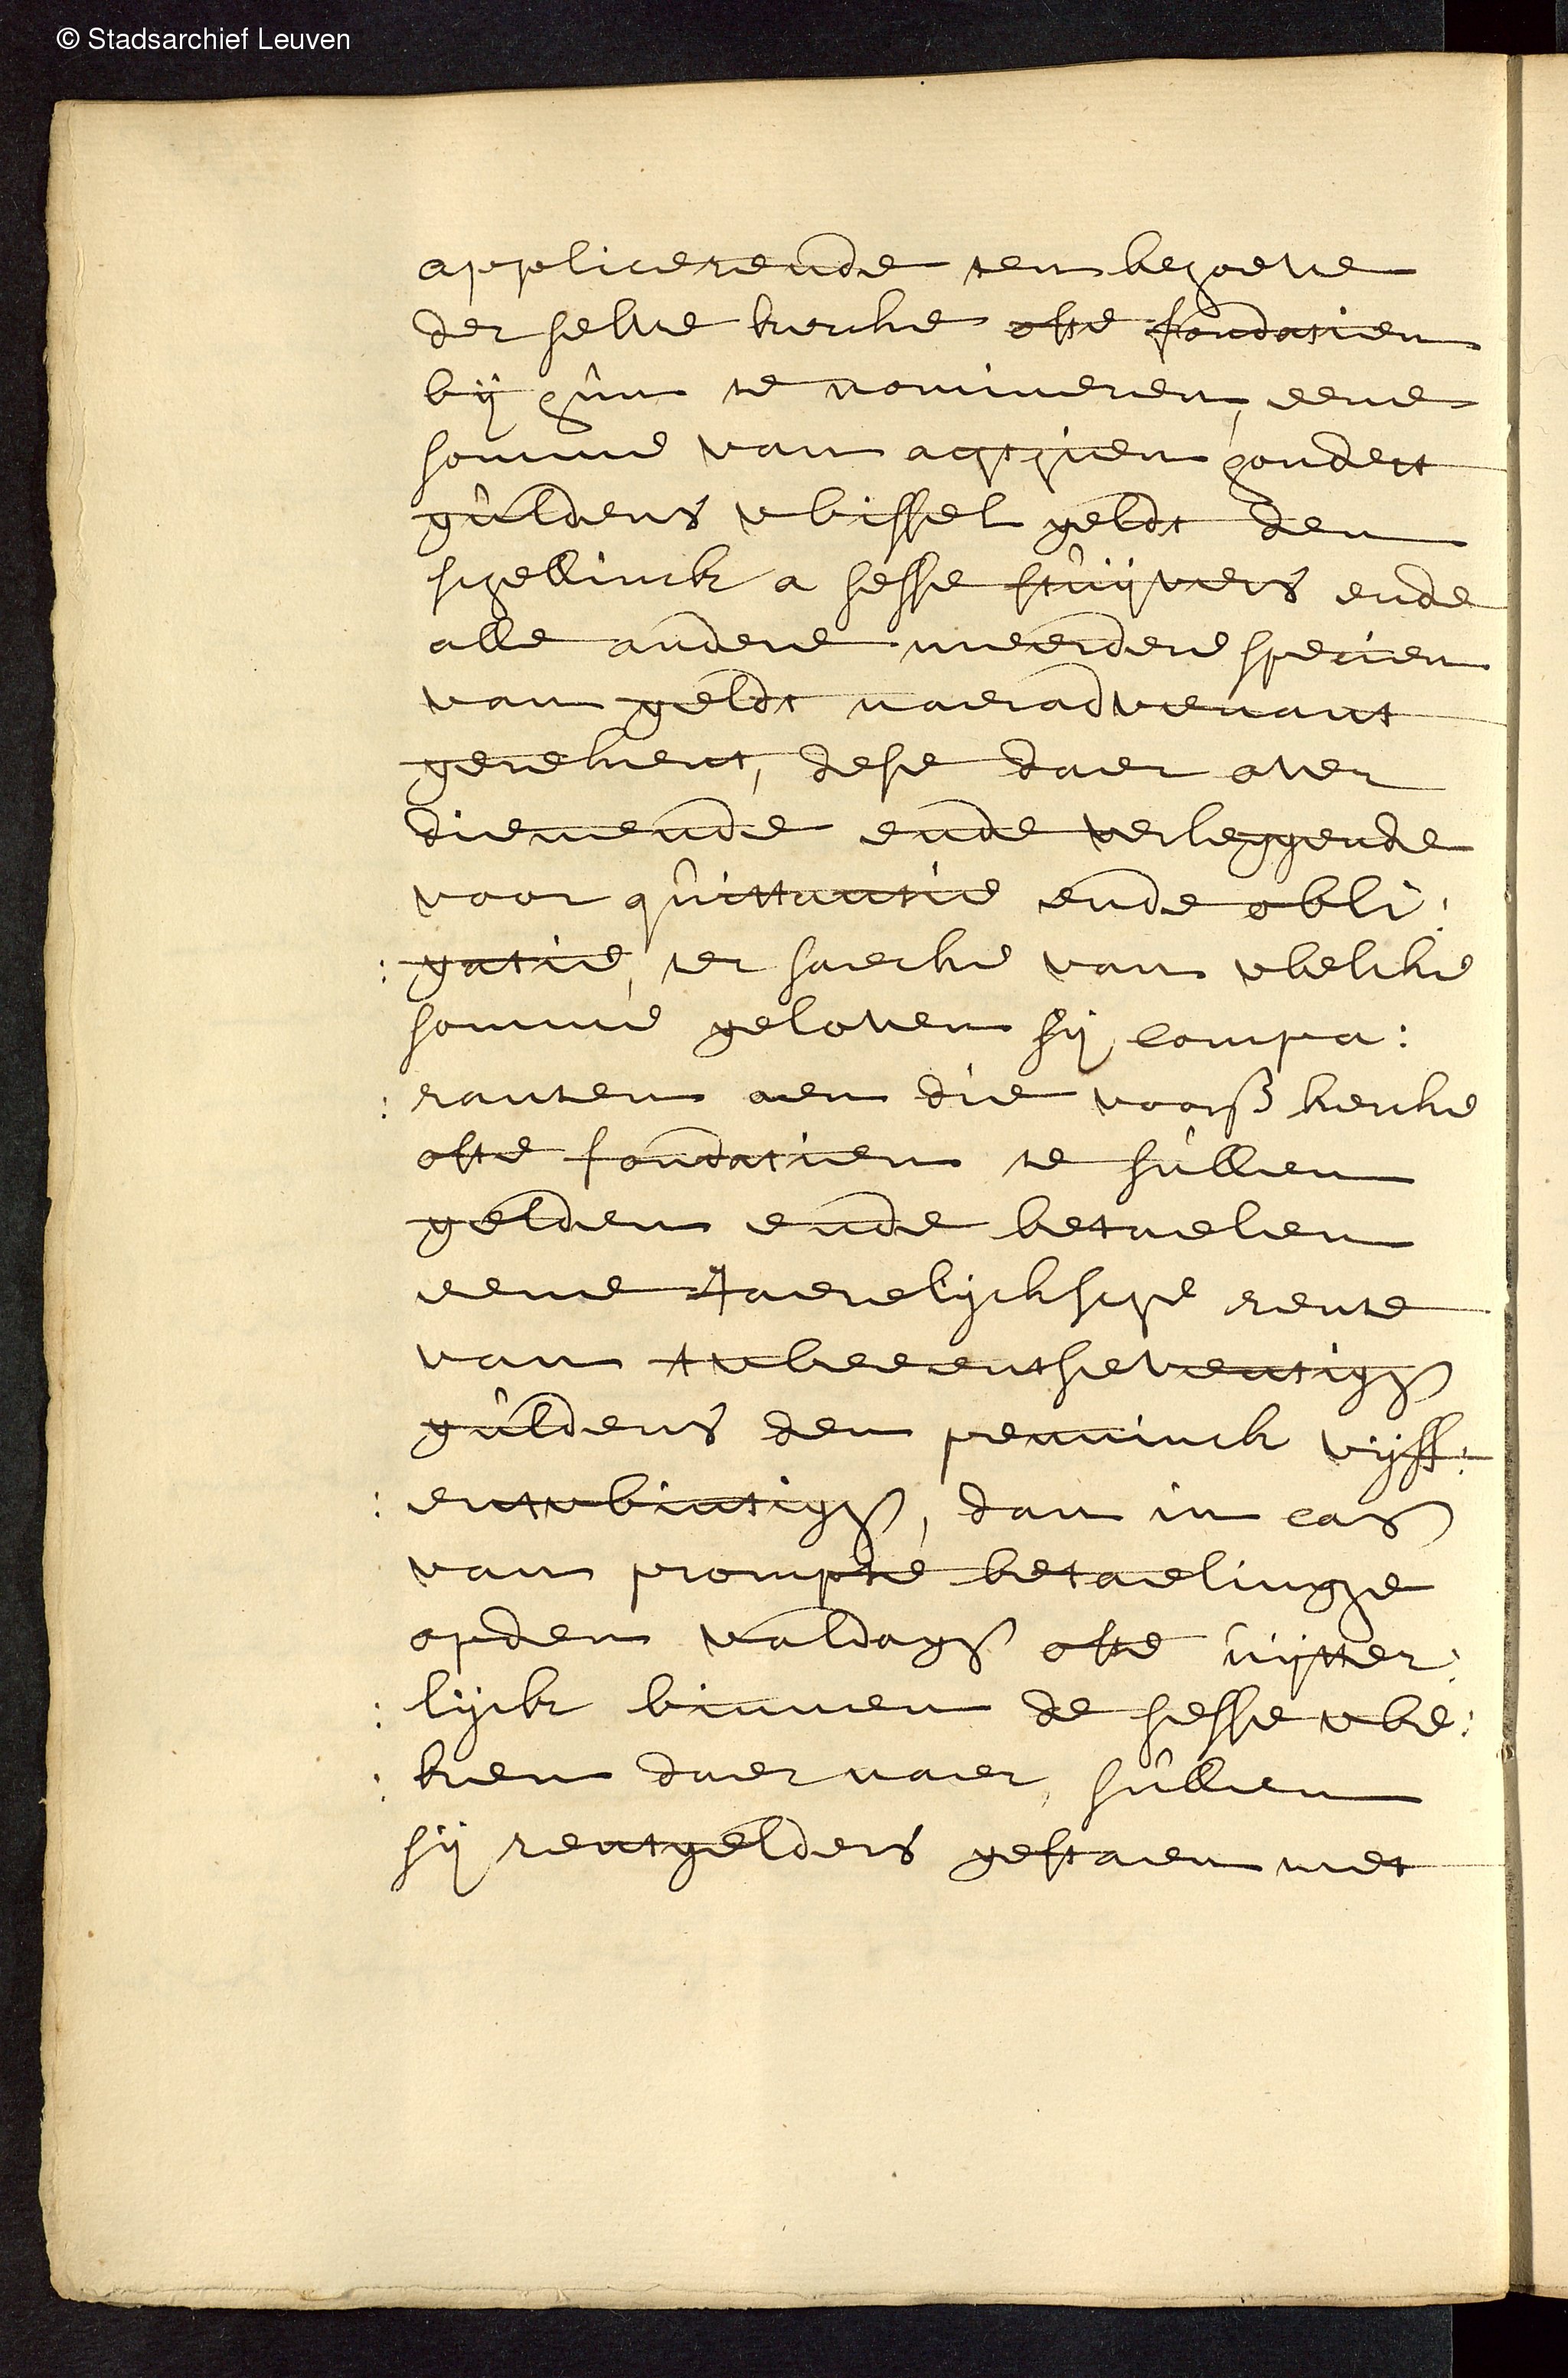 © Stadsarchief Leuven
applicerende ten behoeve
der selve kercke ofte fondatien
bij hûn te nomineren, eene
somme van achthien hondert
gûldens wissel geldt den
schellinck a sesse stûijvers ende
alle andere meerdere specien
van geldt naer advenant
gerekent, dese daer over
dienende ende verleggende
voor qûittantie ende obli:
:gatie, ter saecke van welcke
somme geloven sij compa:
:ranten aen die voorß kercke
ofte fondatien te sûllen
gelden ende betaelen
eene Jaerelijcksche rente
van tweeentseventigh
gûldens den penninck vijff:
:entwintigh, dan in cas
van prompte betaelinghe
opden valdagh ofte ûijtter:
:lijck binnen de sesse we:
:ken daer naer, sûllen
sij rentgelders gestaen met